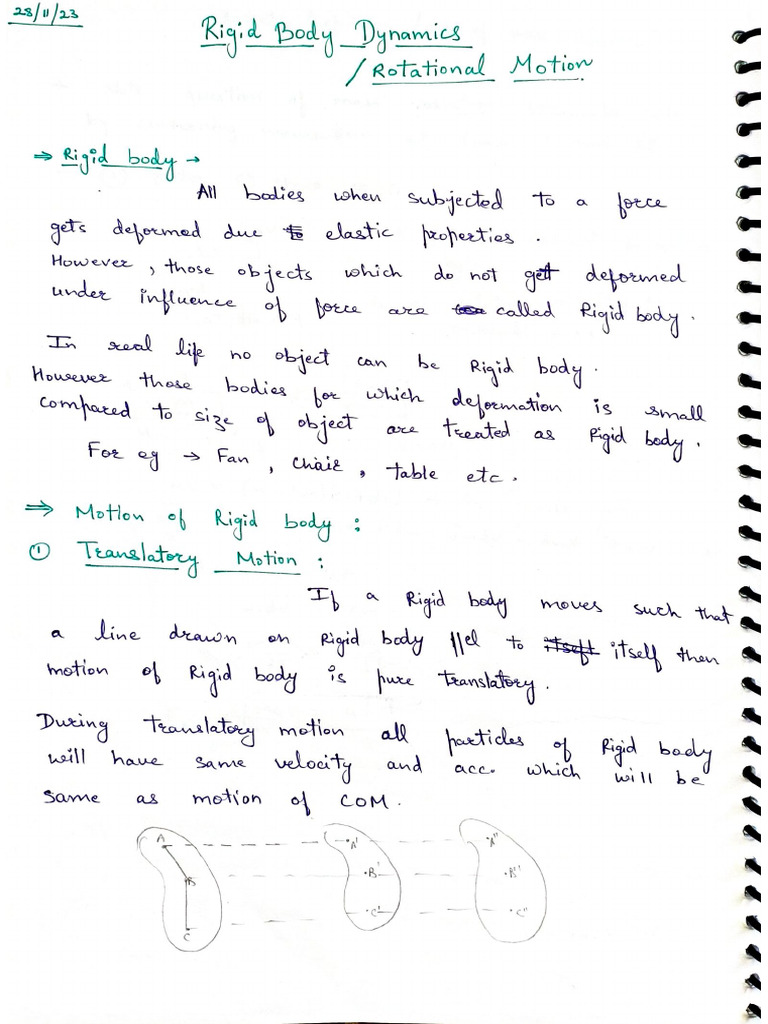 28/11/23
Rigid Body Dynamics
/Rotational Motion
⇒ Rigid body →
All bodies when subjected to a force
gets deformed due to elastic properties.
However, those objects which do not get deformed
under influence of force are called Rigid body.
In real life no object can be Rigid body.
However those bodies for which deformation is small
compared to size of object are treated as Rigid body.
For eg → Fan, chair, table etc.
⇒ Motion of Rigid body :
① Translatory Motion :
If a Rigid body moves such that
a line drawn on Rigid body ||el to itself then
motion of Rigid body is pure translatory.
During translatory motion all particles of Rigid body
will have same velocity and acc. which will be
same as motion of COM.
A A' A''
B B' B''
C C' C''